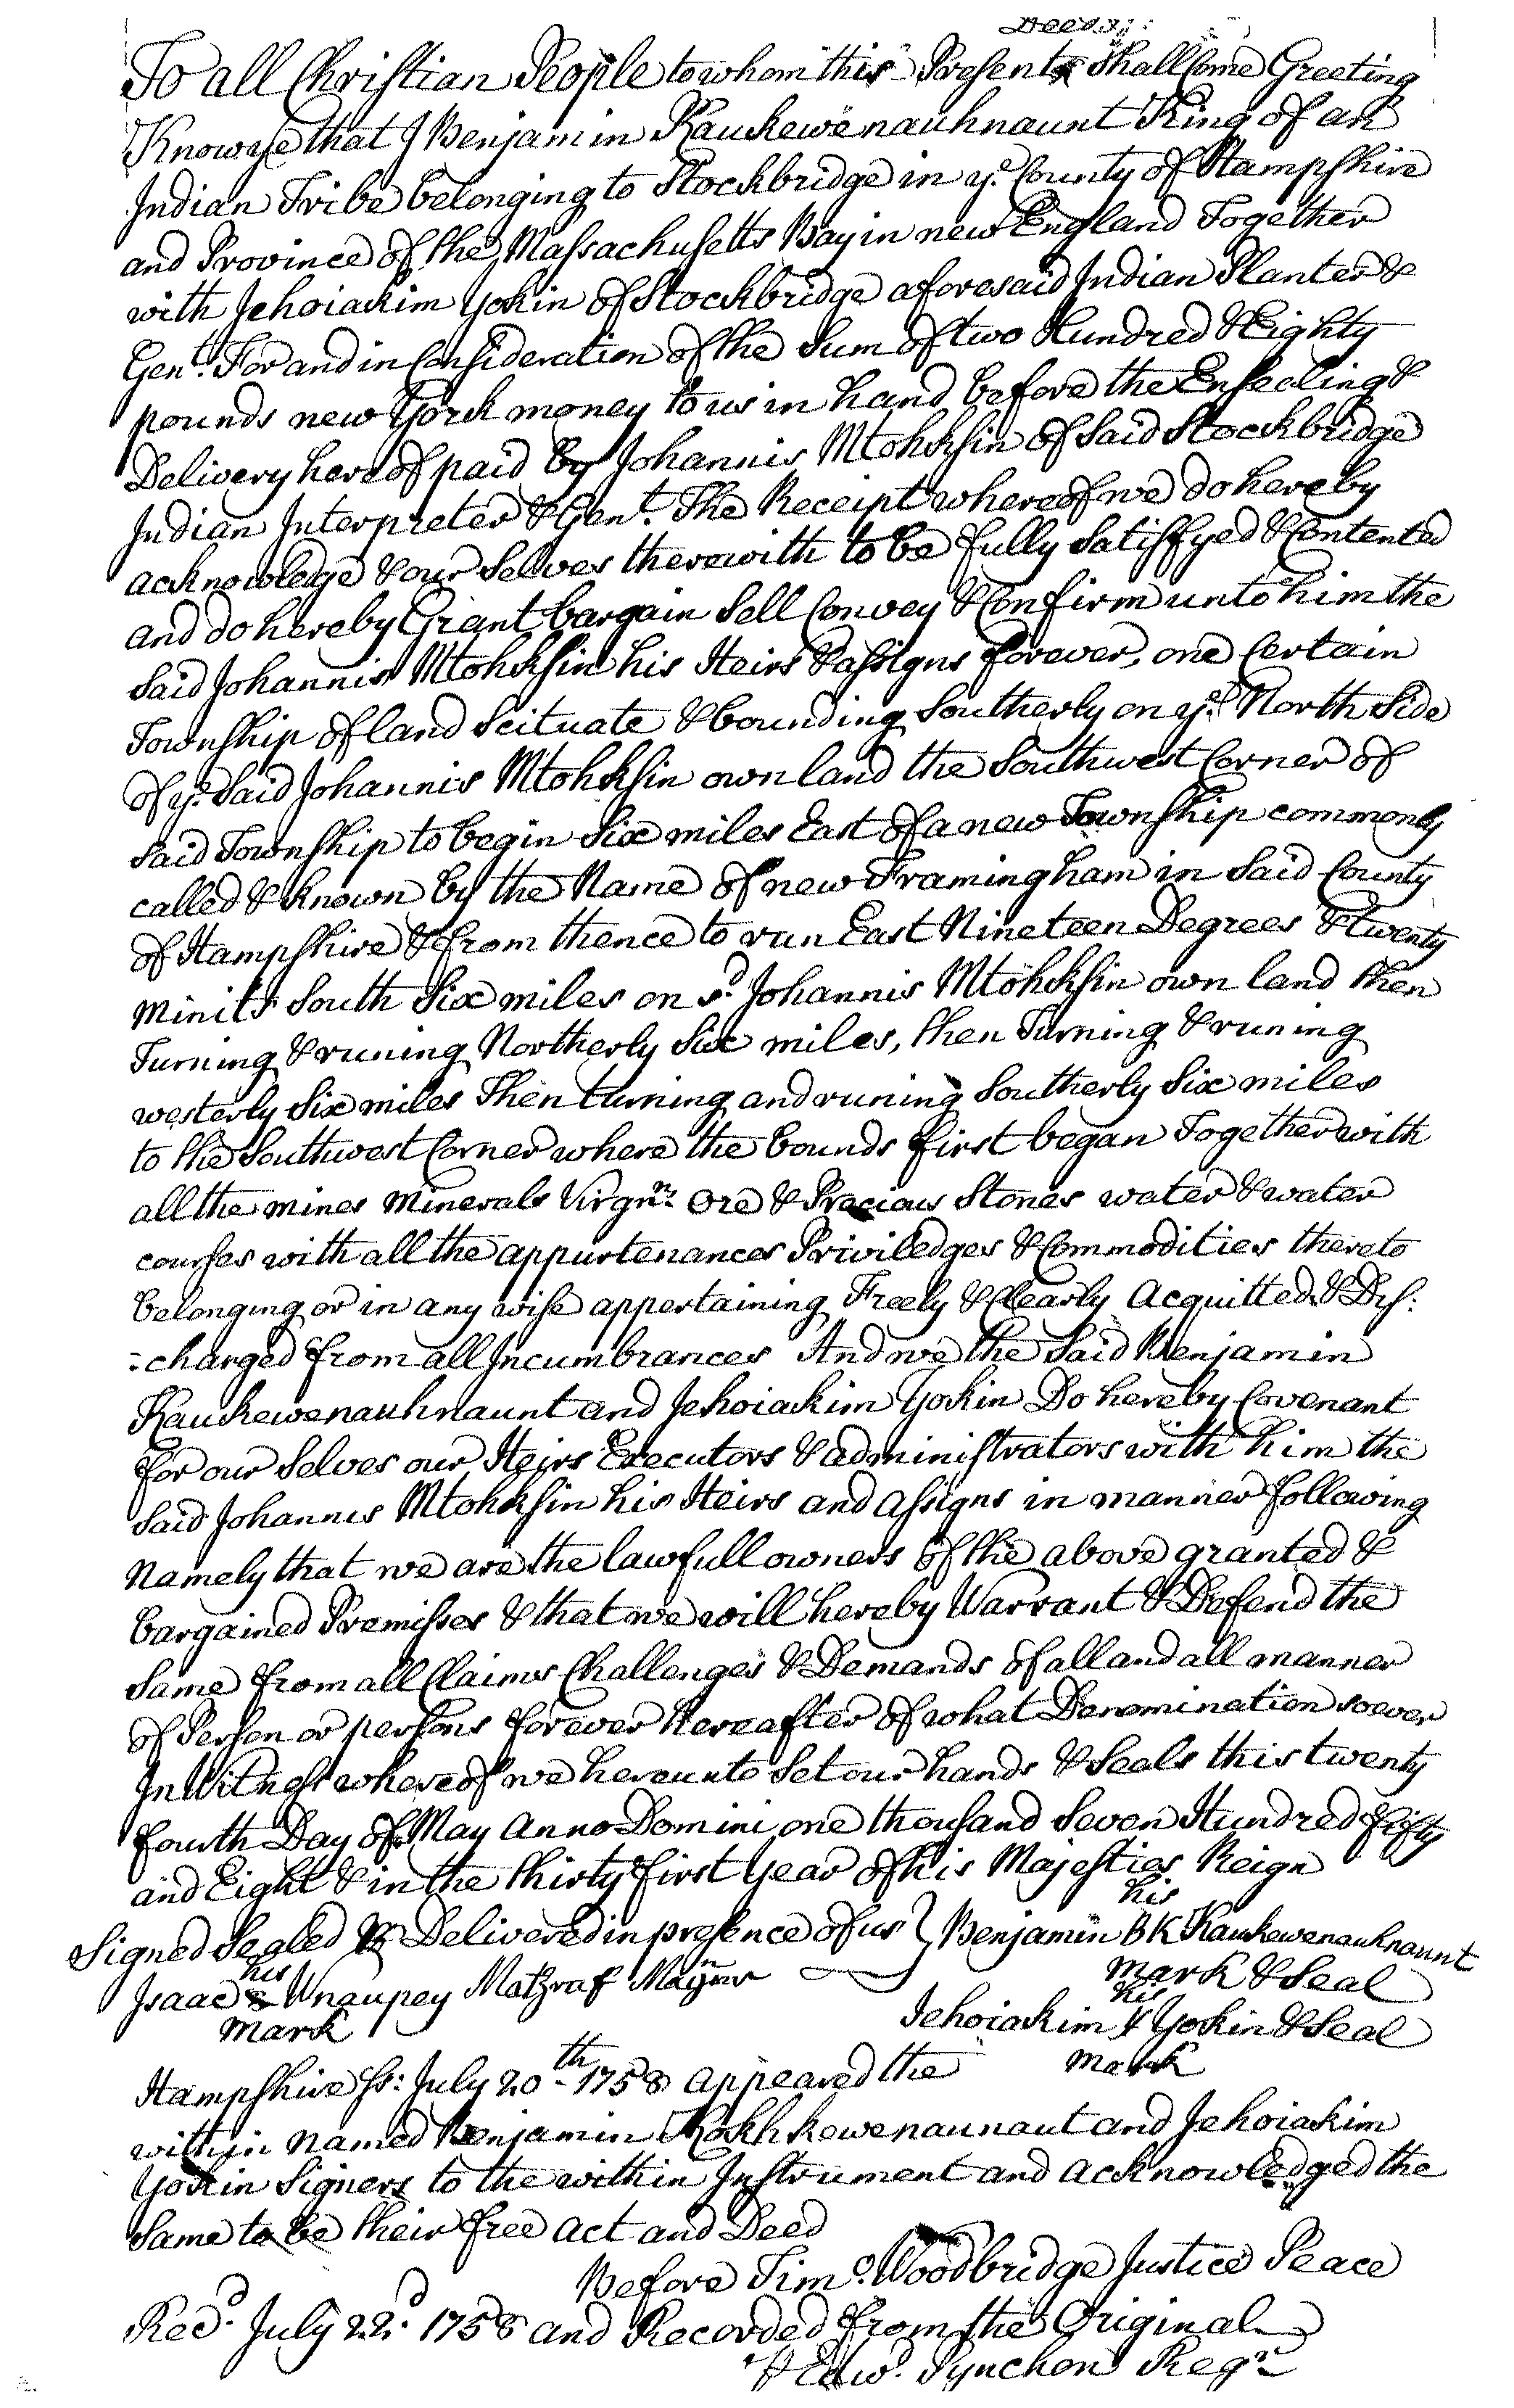 Deeds:
To all Christian People to whom this Presents Shall Come Greeting
Know ye that I Benjamin Kaukewenauhnaunt King of an
Indian Tribe belonging to Stockbridge in ye. County of Hampshire
and Province of the Massachusetts Bay in new England Together
with Jehoiakim Yokin of Stockbridge aforesaid Indian Planter &
Gent. For and in Consideration of the Sum of two Hundred & Eighty
pounds new York money to us in hand before the Ensealing &
Delivery hereof paid by Johannis Mtohksin of Said Stockbridge
Indian Interpreter & Gent. The Receipt whereof we do hereby
acknowledge & our Selves therewith to be fully Satisfyed & Contented
and do hereby Grant bargain Sell Convey & Confirm unto him the
Said Johannis Mtohksin his Heirs & assigns forever, one Certain
Township of land Scituate & bounding Southerly on ye. North Side
of ye. Said Johannis Mtohksin own land the Southwest Corner of
Said Township to begin Six miles East of a new Township commonly
called & known by the Name of new Framingham in Said County
of Hampshire & from thence to run East Nineteen Degrees & twenty
minits South Six miles on sd. Johannis Mtohksin own land then
Turning & runing Northerly Six miles, then Turning & runing
westerly Six miles Then turning and runing Southerly Six miles
to the Southwest Corner where the bounds first began Together with
all the mines Minerals Virgn.s Ore & Precious Stones water & water
courses with all the appurtenances Priviledges & Commodities thereto
belonging or in any wise appertaining Freely & Clearly Acquitted & Dis:
:charged from all Incumbrances And we the Said Benjamin
Kaukewenauhnaunt and Jehoiakim Yokin Do hereby Covenant
for our Selves our Heirs Executors & administrators with him the
Said Johannis Mtohksin his Heirs and assigns in manner following
Namely that we are the lawfull owners of the above granted &
bargained Premisses & that we will hereby Warrant & Defend the
Same from all Claims Challenges & Demands of all and all manner
of Person or persons forever hereafter of what Denomination soever
In Witness whereof we hereunto Set our hands & Seals this twenty
fourth Day of May Anno Domini one thousand Seven Hundred fifty
and Eight & in the thirty first Year of his Majesties Reign
his
Signed Sealed & Delivered in presence of us } Benjamin BK Kaukewenauhnaunt
his mark & Seal
Isaac Wnaupey his
mark Jehoiakim Yokin & Seal
mark
Hampshire ss: July 20th 1758 appeared the
within named Benjamin Kokhkewenaunaut and Jehoiakim
Yokin Signers to the within Instrument and acknowledged the
Same to be their free act and Deed
Before Timo. Woodbridge Justice Peace
Recd. July 22d. 1758 and Recorded from the Original
P Edwd. Pynchon Regr